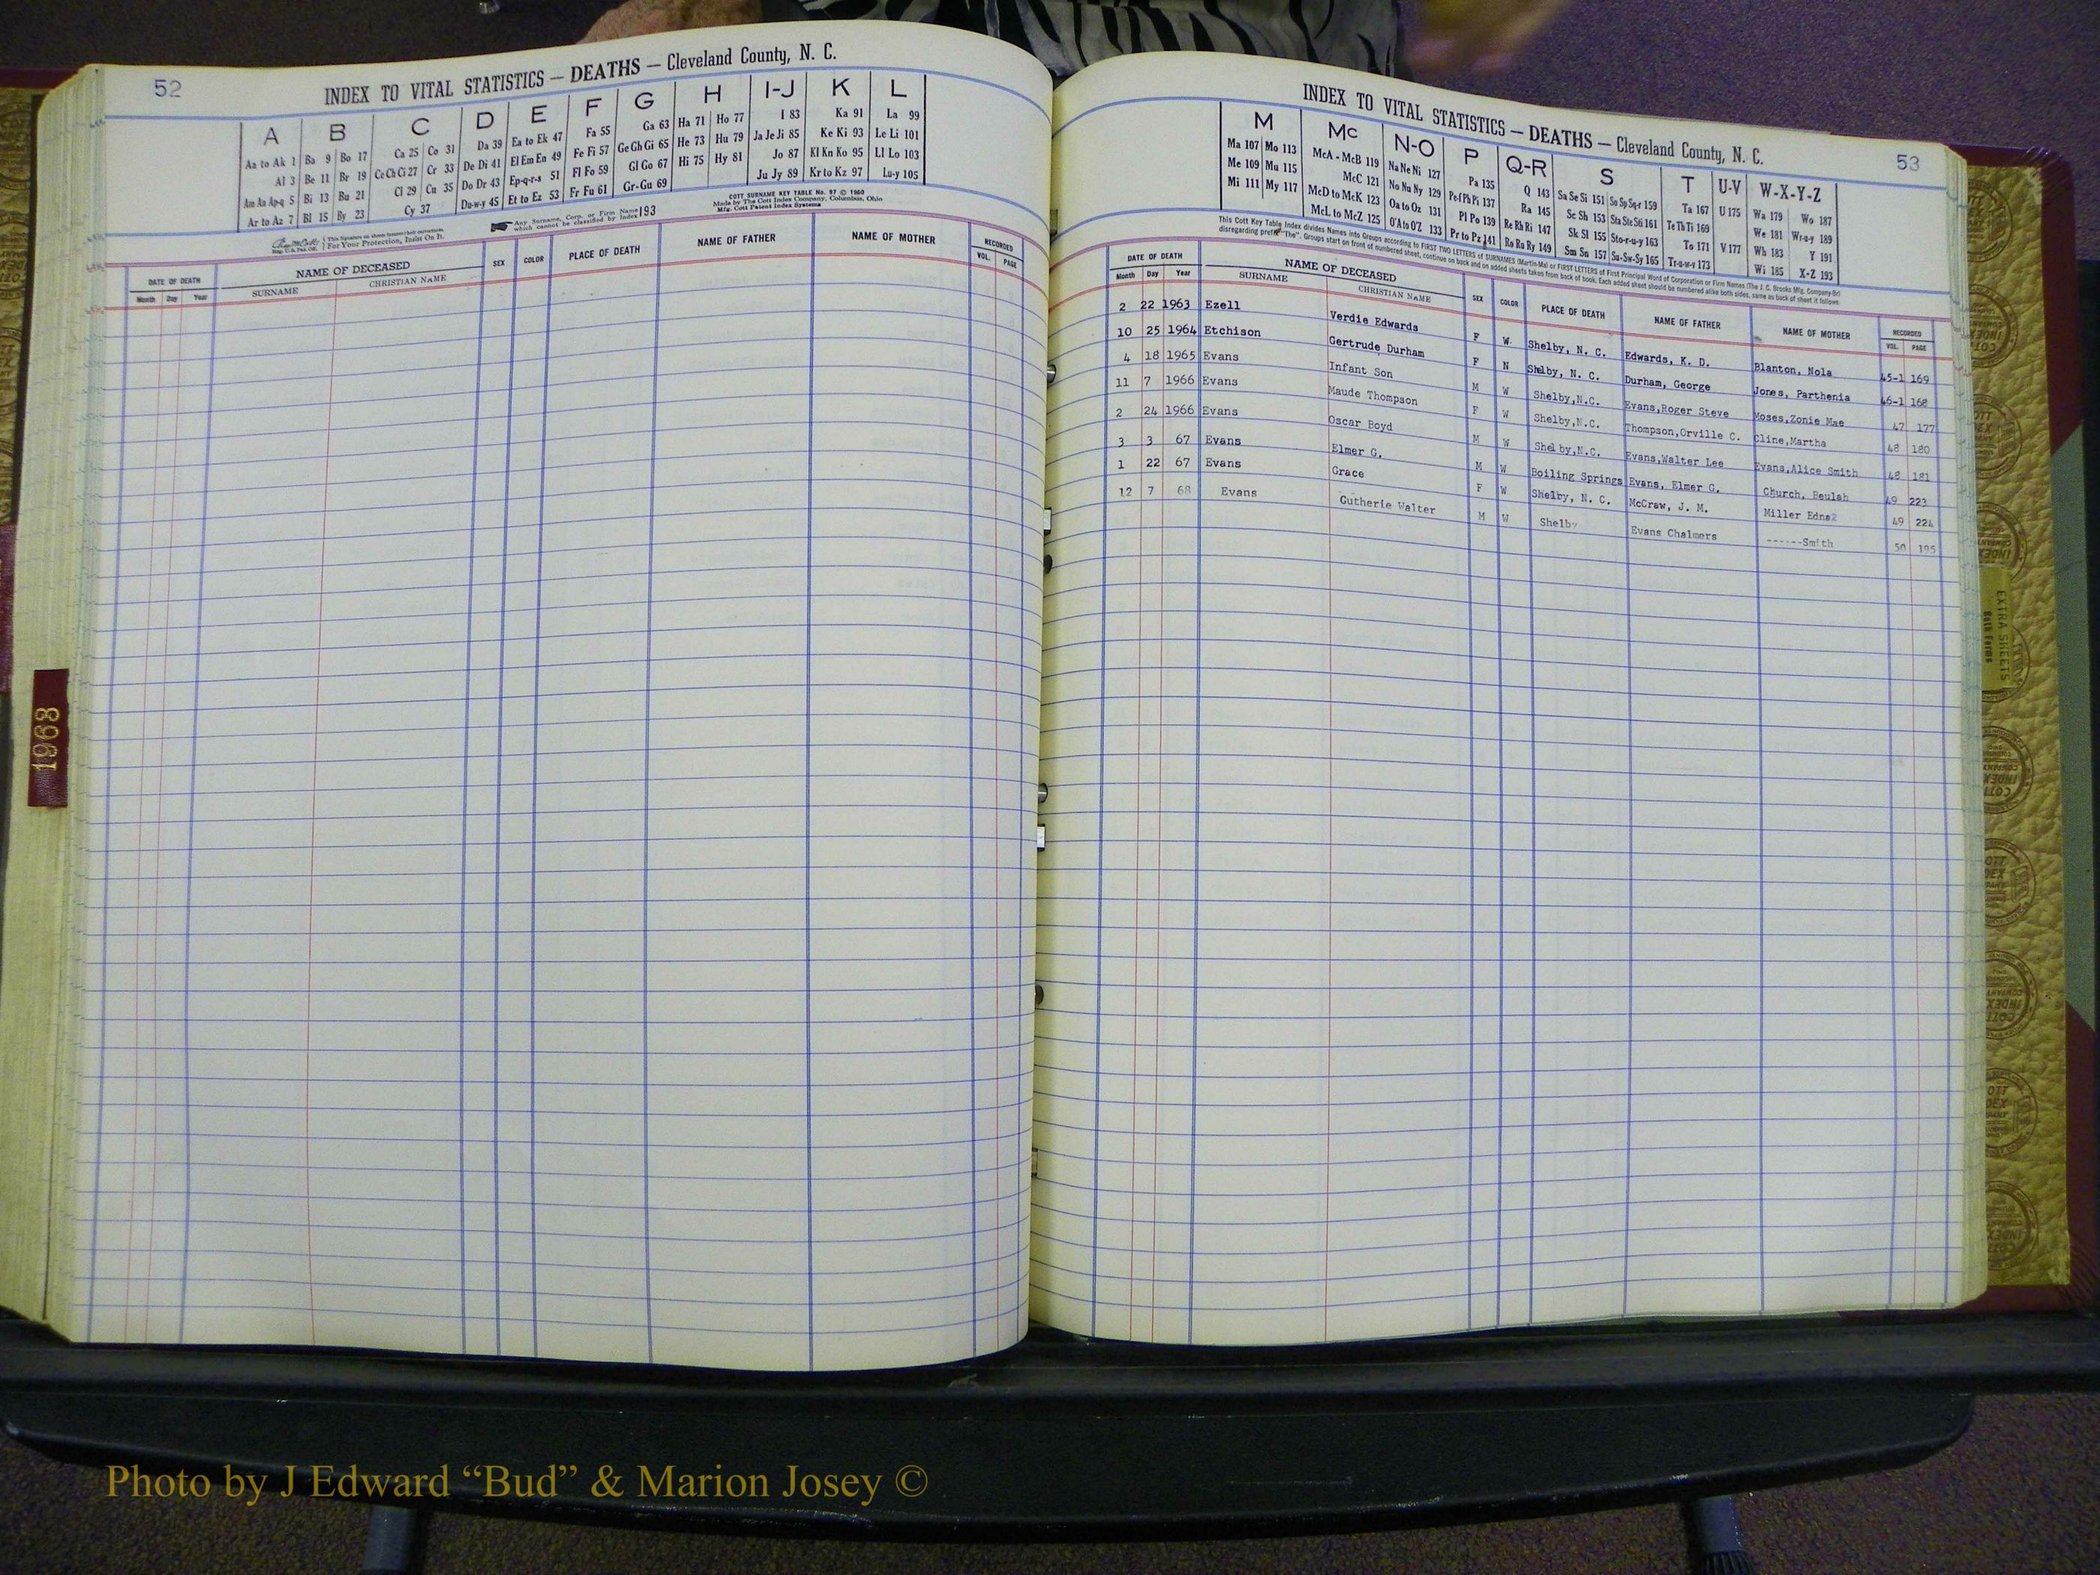 52
INDEX TO VITAL STATISTICS — DEATHS — Cleveland County, N. C.
A B C D E F G H I-J K L
Aa to Ak 1 Ba 9 Bo 17 Ca 25 Co 31 Da 39 Ea to Ek 47 Fa 55 Ga 63 Ha 71 Ho 77 I 83 Ka 91 La 99
Al 3 Be 11 Br 19 Ce Ch Ci 27 Cr 33 De Di 41 El Em En 49 Fe Fi 57 Ge Gh Gi 65 He 73 Hu 79 Ja Je Ji 85 Ke Ki 93 Le Li 101
Am An Ap-q 5 Bi 13 Bu 21 Cl 29 Cu 35 Do Dr 43 Ep-q-r-s 51 Fl Fo 59 Gl Go 67 Hi 75 Hy 81 Jo 87 Kl Kn Ko 95 Ll Lo 103
Ar to Az 7 Bl 15 By 23 Cy 37 Du-w-y 45 Et to Ez 53 Fr Fu 61 Gr-Gu 69 Ju Jy 89 Kr to Kz 97 Lu-y 105
This Signature on sheets insures their correctness.
For Your Protection, Insist On It.
Any Surname, Corp. or Firm Name
which cannot be classified by Index 193
COTT SURNAME KEY TABLE No. 97 © 1960
Made by The Cott Index Company, Columbus, Ohio
Mfg. Cott Patent Index Systems
DATE OF DEATH NAME OF DECEASED SEX COLOR PLACE OF DEATH NAME OF FATHER NAME OF MOTHER RECORDED
Month Day Year SURNAME CHRISTIAN NAME VOL. PAGE
1968
INDEX TO VITAL STATISTICS — DEATHS — Cleveland County, N. C.
53
M Mc N-O P Q-R S T U-V W-X-Y-Z
Ma 107 Mo 113 McA - McB 119 Na Ne Ni 127 Pa 135 Q 143 Sa Se Si 151 So Sp Sq-r 159 Ta 167 U 175 Wa 179 Wo 187
Me 109 Mu 115 McC 121 No Nu Ny 129 Pe Pf Ph Pi 137 Ra 145 Sc Sh 153 Sta Ste Sti 161 Te Th Ti 169 We 181 Wr-u-y 189
Mi 111 My 117 McD to McK 123 Oa to Oz 131 Pl Po 139 Re Rh Ri 147 Sk Sl 155 Sto-r-u-y 163 To 171 V 177 Wh 183 Y 191
McL to McZ 125 O'A to O'Z 133 Pr to Pz 141 Ro Ru Ry 149 Sm Sn 157 Su-Sw-Sy 165 Tr-u-w-y 173 Wi 185 X-Z 193
This Cott Key Table Index divides Names into Groups according to FIRST TWO LETTERS of SURNAMES (Martin-Ma) or FIRST LETTERS of First Principal Word of Corporation or Firm Names (The J. C. Brooks Mfg. Company-Br)
disregarding prefix "The". Groups start on front of numbered sheet, continue on back and on added sheets taken from back of book. Each added sheet should be numbered alike both sides, same as back of sheet it follows.
DATE OF DEATH NAME OF DECEASED SEX COLOR PLACE OF DEATH NAME OF FATHER NAME OF MOTHER RECORDED
Month Day Year SURNAME CHRISTIAN NAME VOL. PAGE
2 22 1963 Ezell Verdie Edwards F W Shelby, N. C. Edwards, K. D. Blanton, Nola 45-1 169
10 25 1964 Etchison Gertrude Durham F N Shelby, N. C. Durham, George Jones, Parthenia 46-1 168
4 18 1965 Evans Infant Son M W Shelby,N.C. Evans,Roger Steve Moses,Zonie Mae 47 177
11 7 1966 Evans Maude Thompson F W Shelby,N.C. Thompson,Orville C. Cline,Martha 48 180
2 24 1966 Evans Oscar Boyd M W Shelby,N.C. Evans,Walter Lee Evans,Alice Smith 48 181
3 3 67 Evans Elmer G. M W Boiling Springs Evans, Elmer G. Church, Beulah 49 223
1 22 67 Evans Grace F W Shelby, N. C. McCraw, J. M. Miller Edna 49 224
12 7 68 Evans Gutherie Walter M W Shelby Evans Chalmers ------Smith 50 195
EXTRA SHEETS
Both Forms
Photo by J Edward “Bud” & Marion Josey ©